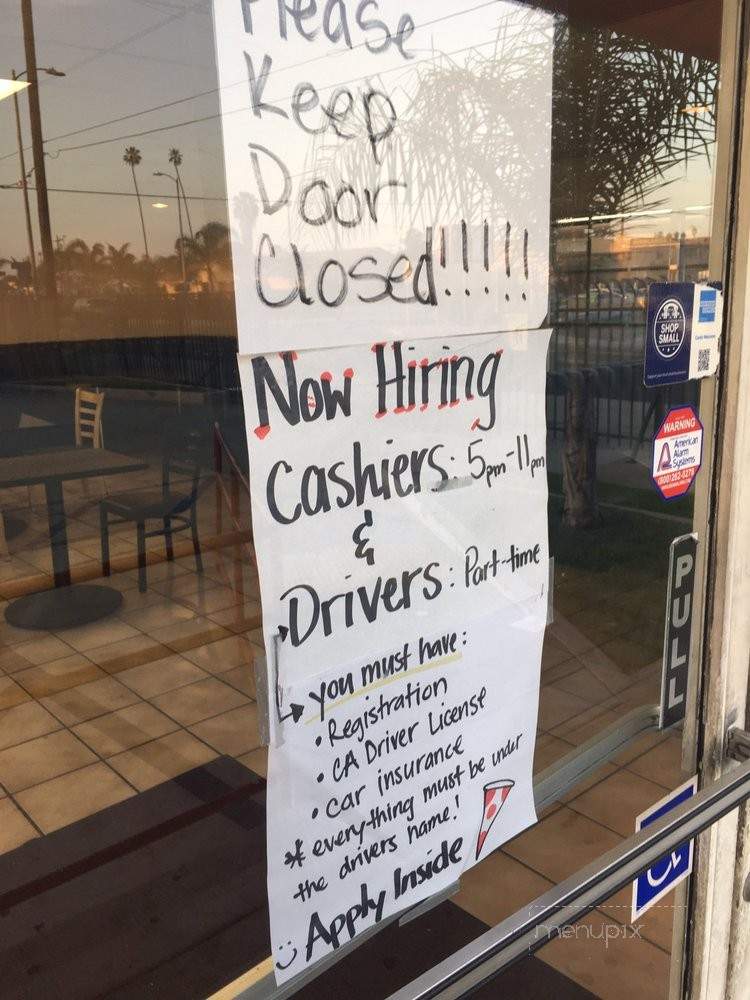 Please
Keep
Door
Closed!!!!!
Now Hiring
Cashiers: 5pm-11pm
&
Drivers: Part-time
you must have:
• Registration
• CA Driver License
• car insurance
* everything must be under
the drivers name!
Apply Inside
SHOP
SMALL
WARNING
American
Alarm
Systems
PULL
menupix